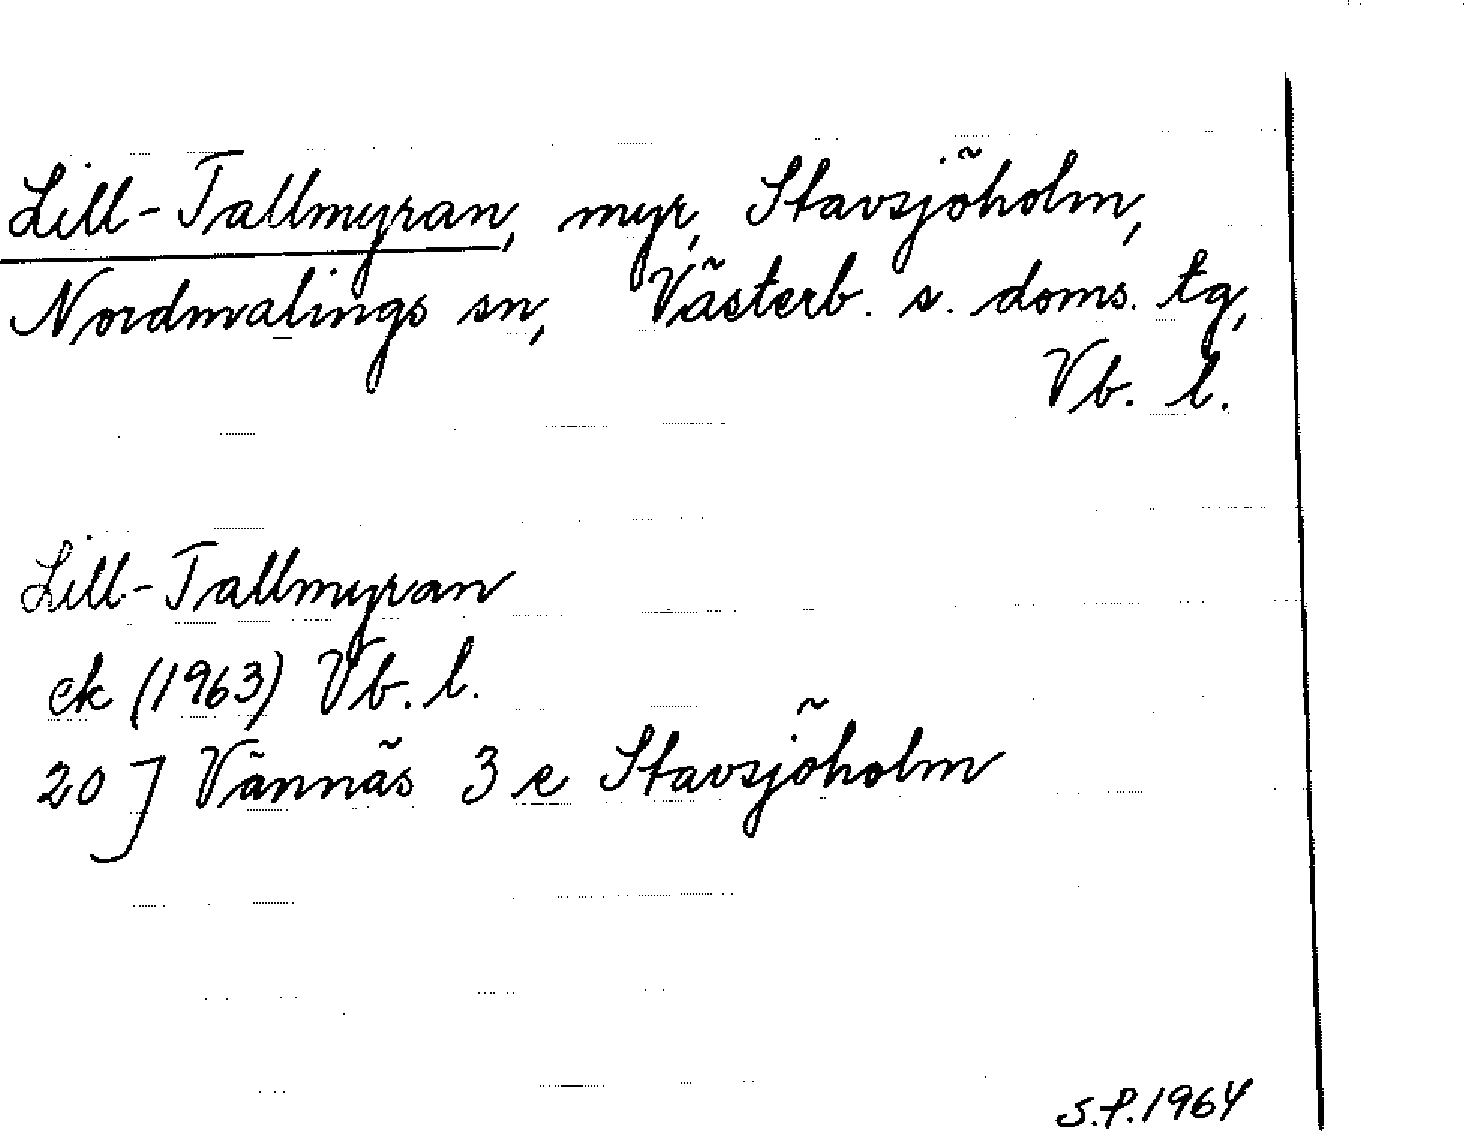 Lill-Tallmyran, myr, Stavsjöholm,
Nordmalings sn, Västerb. s. doms. tg,
Vb. l.
Lill-Tallmyran
ek (1963) Vb. l.
20 J Vännäs 3 e Stavsjöholm
S.P. 1964